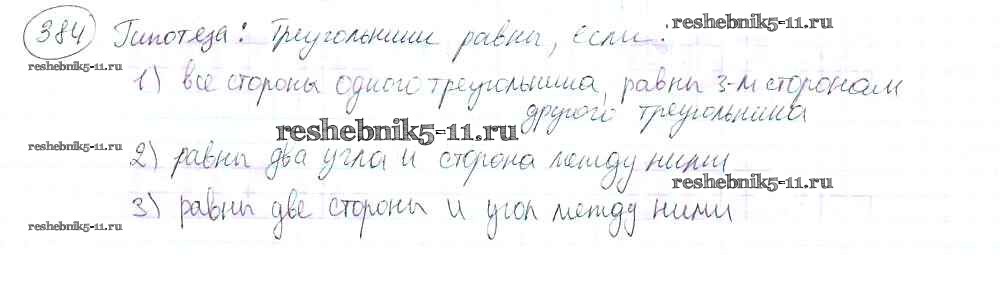 384 Гипотеза: Треугольники равны, если:
reshebnik5-11.ru
reshebnik5-11.ru
1) все стороны одного треугольника, равны 3-м сторонам
другого треугольника
reshebnik5-11.ru
reshebnik5-11.ru
2) равны два угла и сторона между ними
reshebnik5-11.ru
3) равны две стороны и угол между ними
reshebnik5-11.ru